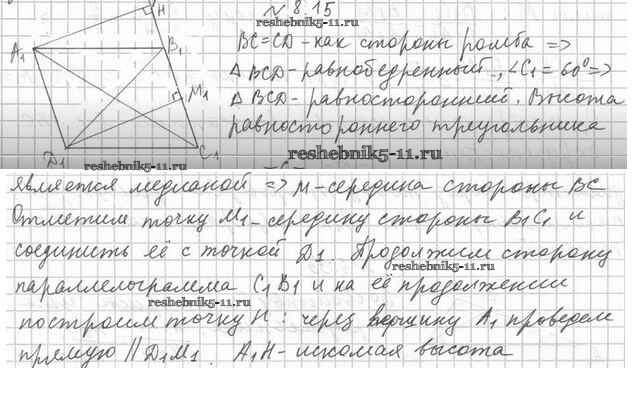 № 8.15
H
reshebnik5-11.ru
A₁
B₁
M₁
D₁
C₁
reshebnik5-11.ru
BC=CD - как стороны ромба =>
△ BCD - равнобедренный, ∠C₁ = 60° =>
△ BCD - равносторонний. Высота
равностороннего треугольника
reshebnik5-11.ru
является медианой => M - середина стороны BC
Отметим точку M₁ - середину стороны B₁C₁ и
соединить её с точкой D₁. Продолжим сторону
reshebnik5-11.ru
параллелограмма C₁B₁ и на её продолжении
reshebnik5-11.ru
построим точку H: через вершину A₁ проведем
прямую || D₁M₁. A₁H - искомая высота